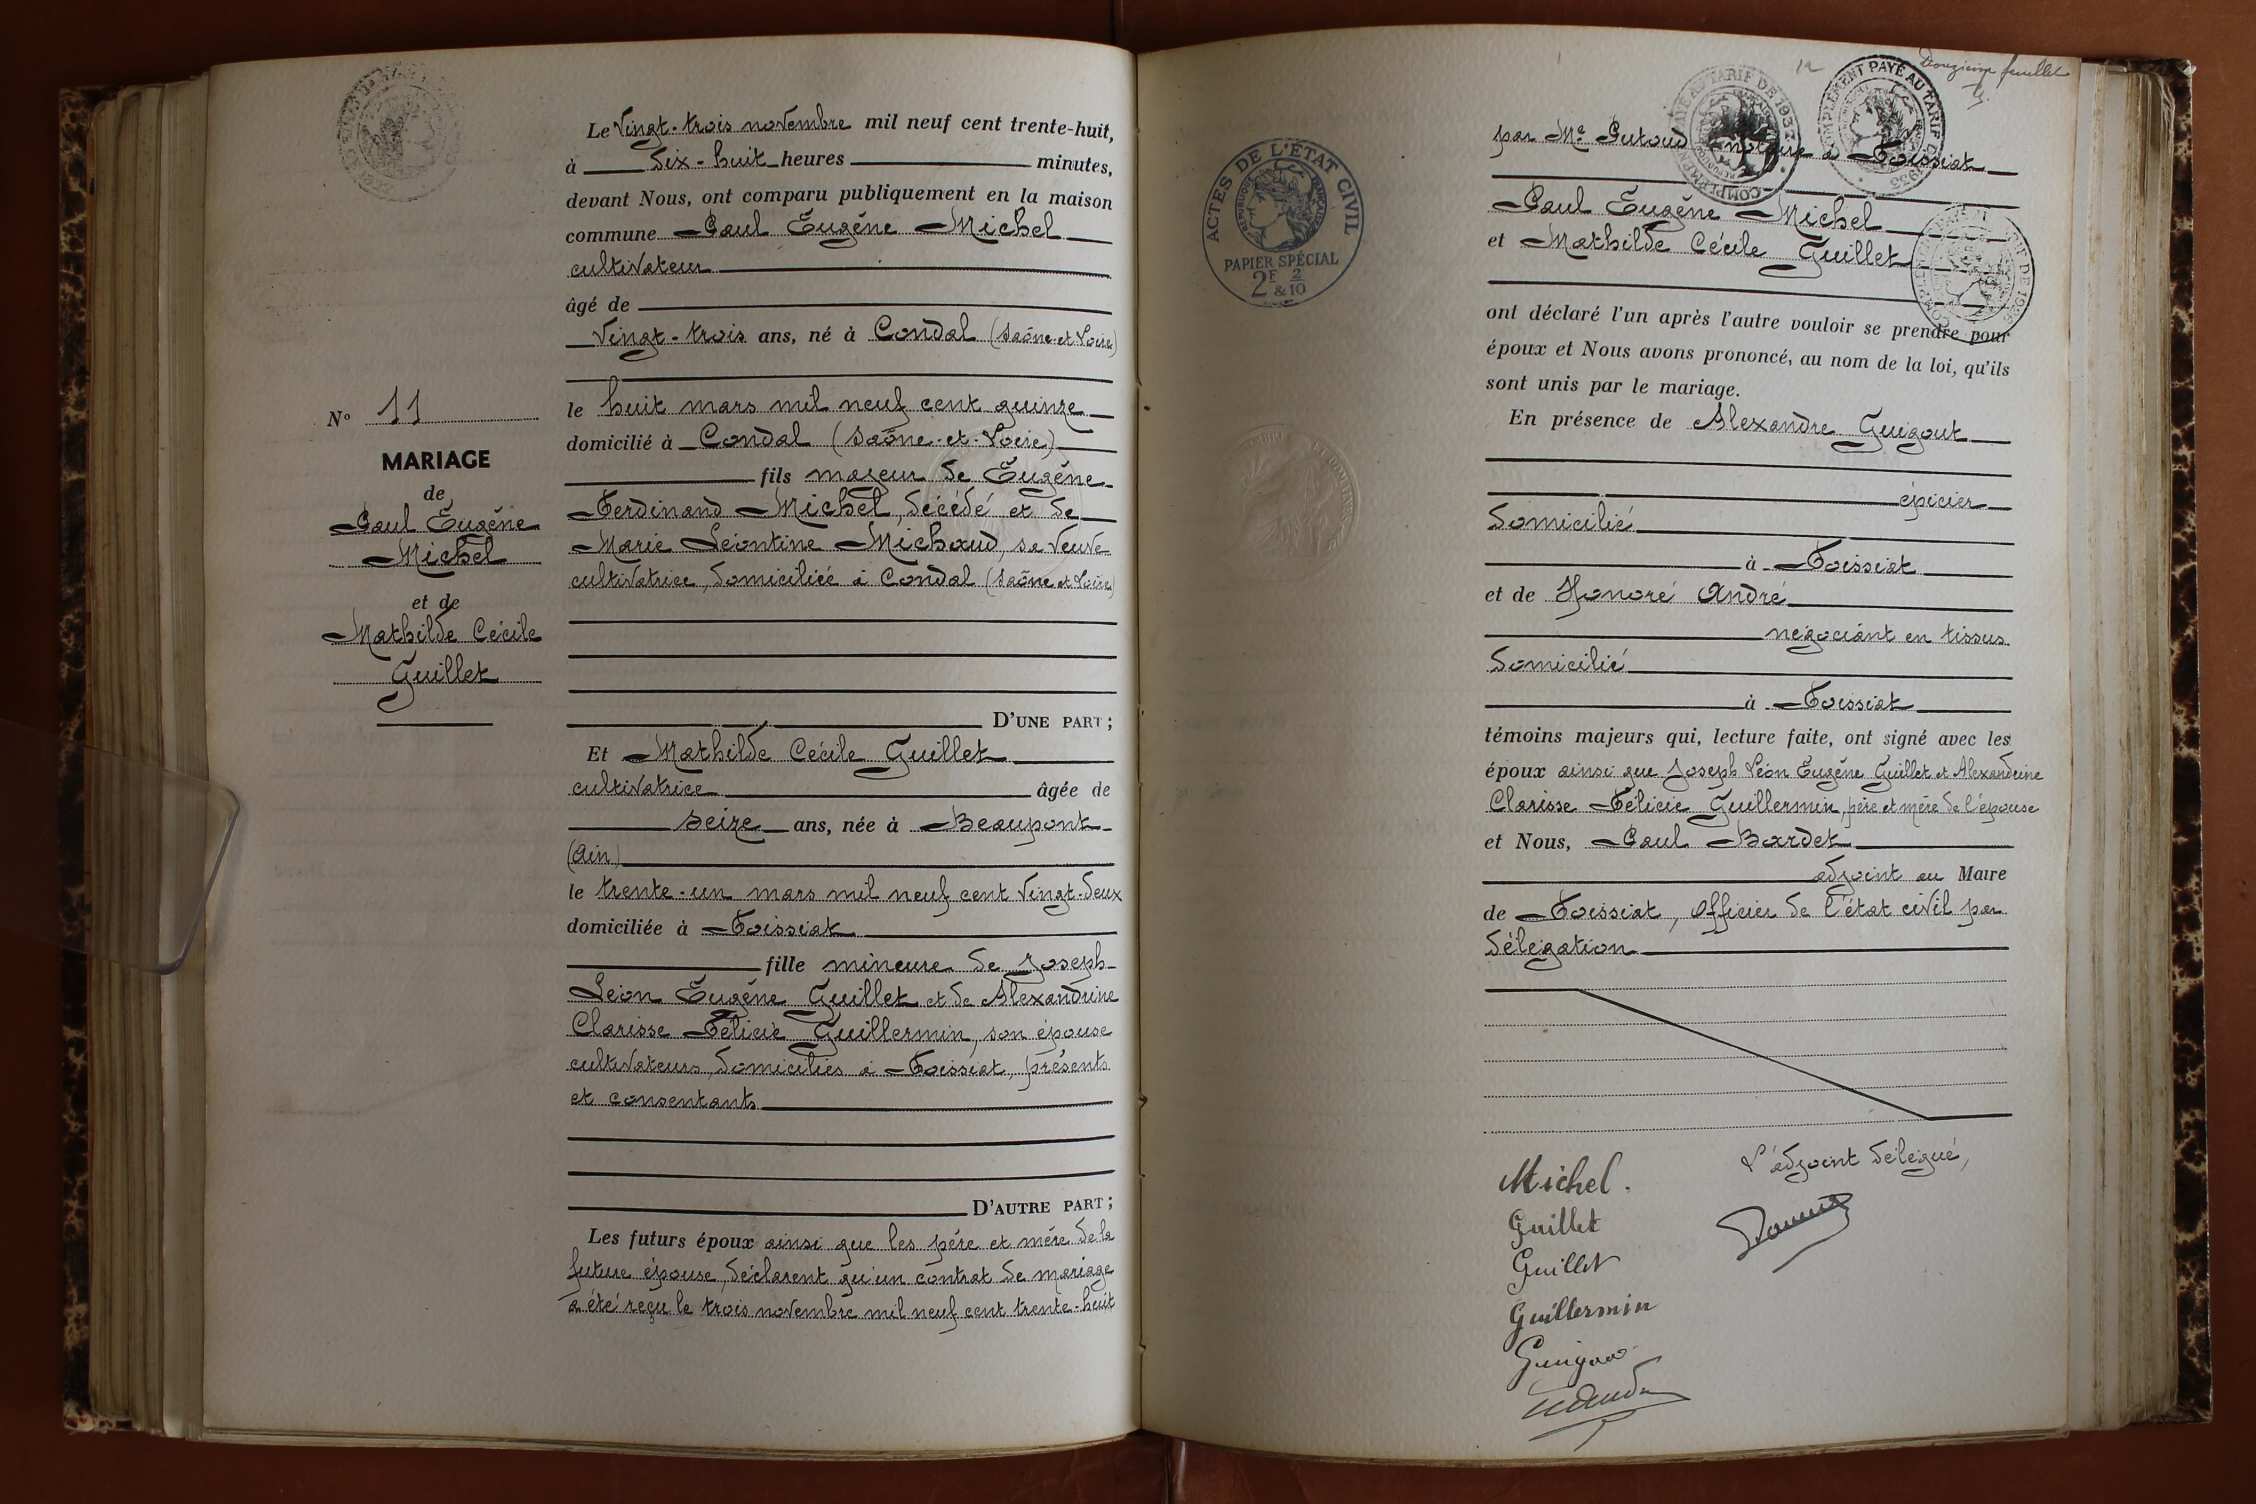 Le Vingt-trois novembre mil neuf cent trente-huit,
à dix-huit heures minutes,
devant Nous, ont comparu publiquement en la maison
commune Paul Eugène Michel
cultivateur
âgé de
Vingt-trois ans, né à Condal (Saône-et-Loire)
le huit mars mil neuf cent quinze
domicilié à Condal (Saône-et-Loire)
fils majeur de Eugène
Ferdinand Michel, décédé et de
Marie Léontine Michaud, sa veuve
cultivatrice, domiciliée à Condal (Saône et Loire)
D'UNE PART ;
Nº 11
MARIAGE
de
Paul Eugène
Michel
et de
Mathilde Cécile
Guillet
Et Mathilde Cécile Guillet
cultivatrice âgée de
seize ans, née à Beaupont
(Ain)
le trente-un mars mil neuf cent vingt-deux
domiciliée à Foissiat
fille mineure de Joseph
Léon Eugène Guillet et de Alexandrine
Clarisse Félicie Guillermin, son épouse
cultivateurs, domiciliés à Foissiat, présents
et consentants
D'AUTRE PART ;
Les futurs époux ainsi que les père et mère de la
future épouse, déclarent qu'un contrat de mariage
a été reçu le trois novembre mil neuf cent trente-huit
12
Douzième feuillet
par Me notaire à Foissiat
COMPLÉMENT PAYÉ AU TARIF DE 1937
COMPLÉMENT PAYÉ AU TARIF
ACTES DE L'ÉTAT CIVIL
RÉPUBLIQUE FRANÇAISE
PAPIER SPÉCIAL
2F & 2/10
Paul Eugène Michel
et Mathilde Cécile Guillet
ont déclaré l'un après l'autre vouloir se prendre pour
époux et Nous avons prononcé, au nom de la loi, qu'ils
sont unis par le mariage.
En présence de Alexandre Guigout
épicier
domicilié
à Foissiat
et de Honoré André
négociant en tissus
domicilié
à Foissiat
témoins majeurs qui, lecture faite, ont signé avec les
époux ainsi que Joseph Léon Eugène Guillet et Alexandrine
Clarisse Félicie Guillermin, père et mère de l'épouse
et Nous, Paul Bardet
adjoint au Maire
de Foissiat, officier de l'état civil par
délégation
L'adjoint délégué,
Michel.
Guillet
Guillet
Guillermin